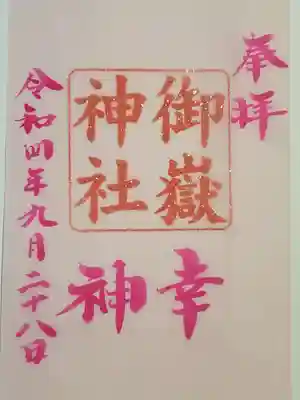 奉拝
御嶽
神社
幸神
令和四年九月二十八日